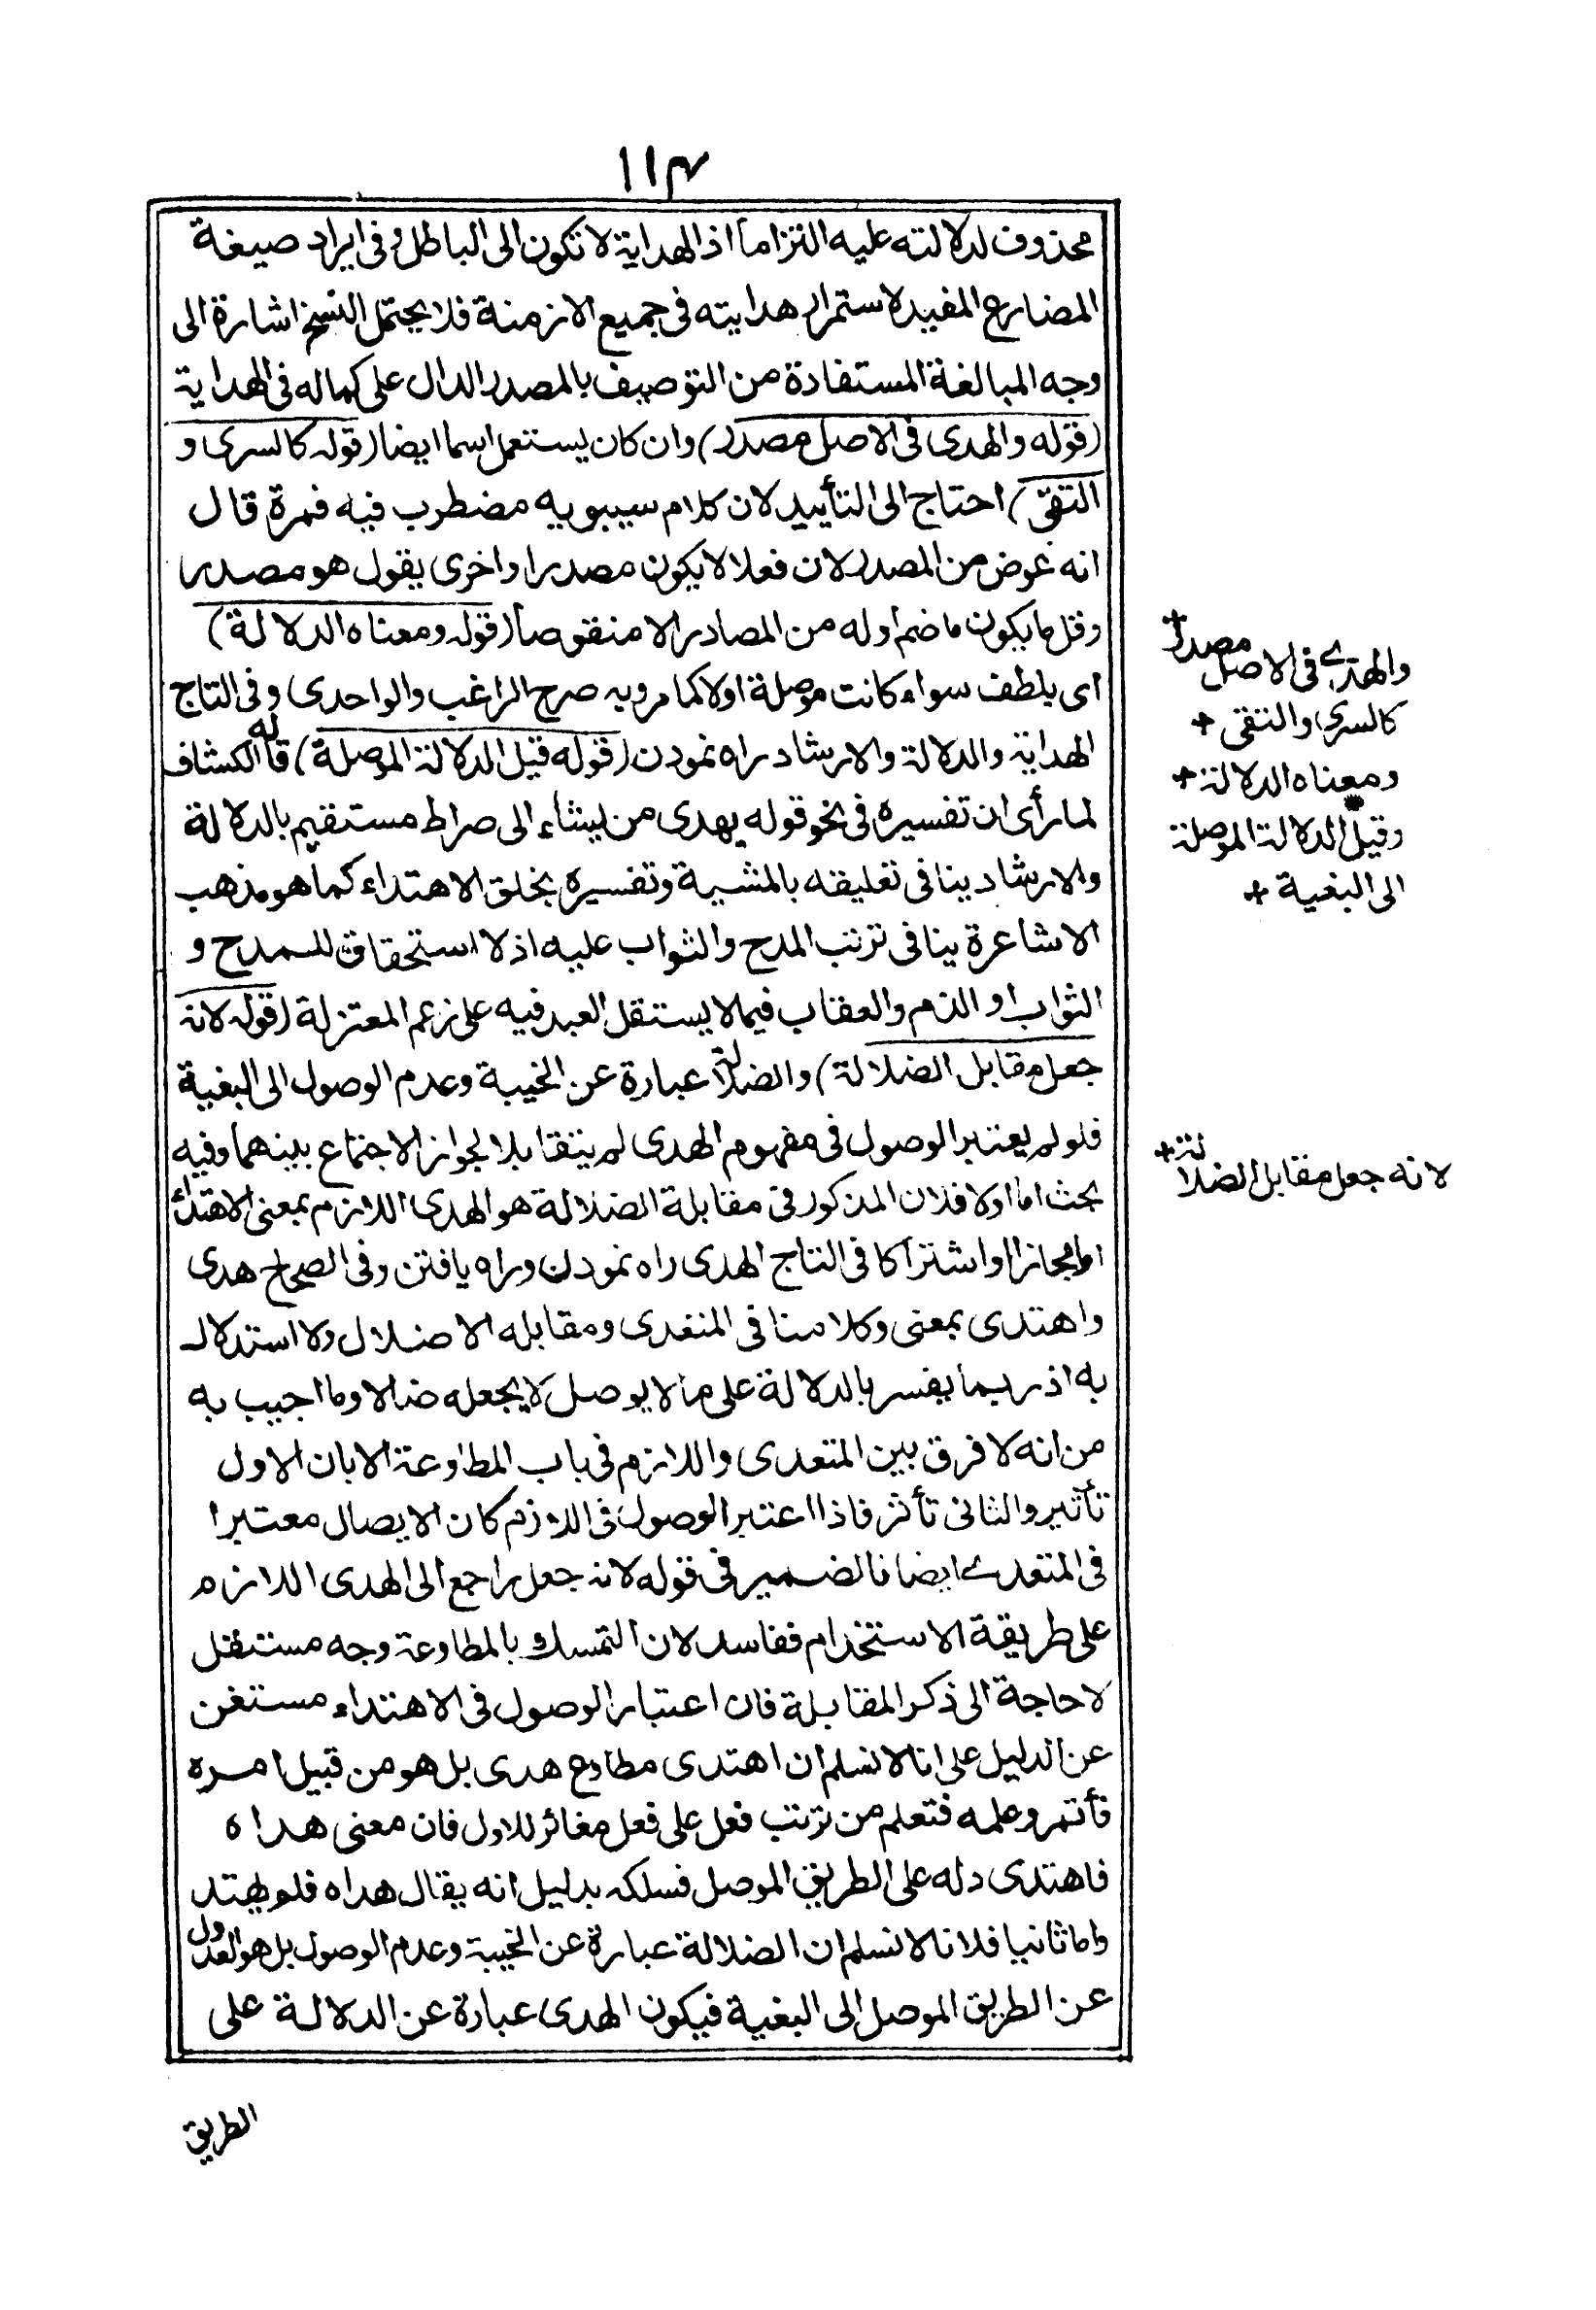 ١١٤
محذوف لدلالته عليه التزاما اذ الهداية لا تكون الى الباطل وفى ايراد صيغة
المضارع المفيد لاستمرار هدايته فى جميع الازمنة فلا يحتمل النسخ اشارة الى
وجه المبالغة المستفادة من التوصيف بالمصدر الدال على كماله فى الهداية
(قوله والهدى فى الاصل مصدر) وان كان يستعمل اسما ايضا (قوله كالسرى و
التقى) احتاج الى التأييد لان كلام سيبويه مضطرب فيه فمرة قال
انه عوض من المصدر لان فعلا لا يكون مصدرا واخرى يقول هو مصدر
وقل ما يكون ما ضم اوله من المصادر الا منقوصا (قوله ومعناه الدلالة)
اى بلطف سواء كانت موصلة اولا كما مر وبه صرح الراغب والواحدى وفى التاج
الهداية والدلالة والارشاد راه نمودن (قوله قيل الدلالة الموصلة) قاله الكشاف
لما رأى ان تفسيره فى نحو قوله يهدى من يشاء الى صراط مستقيم بالدلالة
والارشاد ينافى تعليقه بالمشية وتفسيره بخلق الاهتداء كما هو مذهب
الاشاعرة ينافى ترتب المدح والثواب عليه اذ لا استحقاق للمدح و
الثواب او الذم والعقاب فيما لا يستقل العبد فيه على زعم المعتزلة (قوله لانه
جعل مقابل الضلالة) والضلالة عبارة عن الخيبة وعدم الوصول الى البغية
فلو لم يعتبر الوصول فى مفهوم الهدى لم يتقابلا لجواز الاجتماع بينهما وفيه
بحث اما اولا فلان المذكور فى مقابلة الضلالة هو الهدى اللازم بمعنى الاهتداء
اما مجازا او اشتراكا فى التاج الهدى راه نمودن وراه يافتن وفى الصحاح هدى
واهتدى بمعنى وكلامنا فى المتعدى ومقابله الاضلال ولا استدلال
به اذ ربما يفسر بالدلالة على ما لا يوصل لا يجعله ضالا وما اجيب به
من انه لا فرق بين المتعدى واللازم فى باب المطاوعة الا بان الاول
تأثير والثانى تأثر فاذا اعتبر الوصول فى اللازم كان الايصال معتبرا
فى المتعدى ايضا فالضمير فى قوله لانه جعل راجع الى الهدى اللازم
على طريقة الاستخدام ففاسد لان التمسك بالمطاوعة وجه مستقل
لا حاجة الى ذكر المقابلة فان اعتبار الوصول فى الاهتداء مستغن
عن الدليل على انا لا نسلم ان اهتدى مطاوع هدى بل هو من قبيل امره
فأتمر وعلمه فتعلم من ترتب فعل على فعل مغائر للاول فان معنى هداه
فاهتدى دله على الطريق الموصل فسلكه بدليل انه يقال هداه فلم يهتد
واما ثانيا فلانا لا نسلم ان الضلالة عبارة عن الخيبة وعدم الوصول بل هو العدول
عن الطريق الموصل الى البغية فيكون الهدى عبارة عن الدلالة على
الطريق
والهدى فى الاصل مصدر +
كالسرى والتقى +
ومعناه الدلالة +
وقيل الدلالة الموصلة
الى البغية +
لانه جعل مقابل الضلالة +